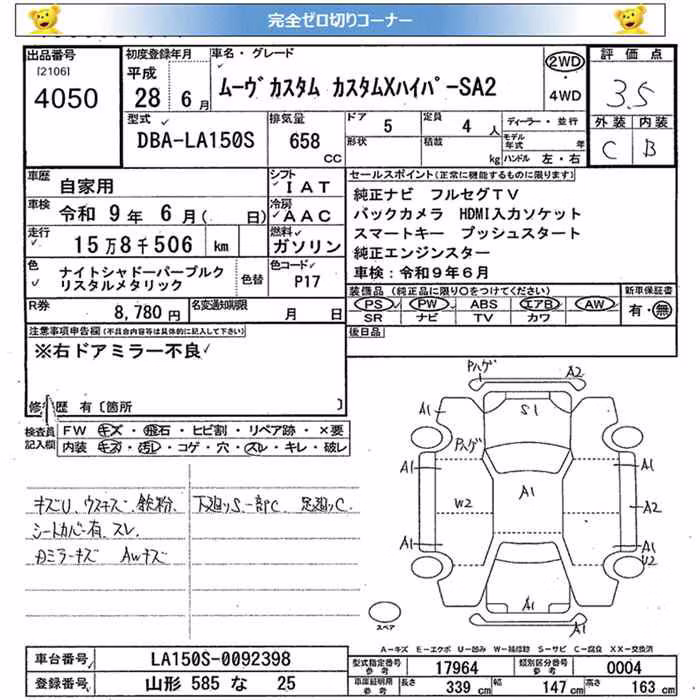 完全ゼロ切りコーナー
出品番号
[2106]
4050
初度登録年月
平成
28 年 6 月
車名・グレード
ムーヴ カスタム カスタムXハイパーSA2
2WD
4WD
評価点
3.5
外装 内装
C B
型式
DBA-LA150S
排気量
658 CC
ドア 5
形状
定員 4 人
積載 kg
ディーラー・並行
モデル年式 年
ハンドル 左・右
車歴
自家用
シフト
IAT
車検
令和 9 年 6 月( 日)
冷房
AAC
走行
15万8千506 km
燃料
ガソリン
色
ナイトシャドーパープルク
リスタルメタリック
色替
色コード
P17
R券
8,780 円
名変通知期限
月 日
セールスポイント(正常に機能するものに限ります)
純正ナビ フルセグTV
バックカメラ HDMI入力ソケット
スマートキー プッシュスタート
純正エンジンスター
車検:令和9年6月
装備品(純正品に限り○をつけてください)
PS PW ABS エアB AW
SR ナビ TV カワ
新車保証書
有・無
後日品
注意事項申告欄(不具合内容等は具体的に記入して下さい)
※右ドアミラー不良
修復歴 有〔箇所 〕
検査員
記入欄
FW キズ・飛石・ヒビ割・リペア跡・×要
内装 キズ・汚レ・コゲ・穴・スレ・キレ・破レ
キズU. ウスキズ. 鉄粉.
シートカバー有. スレ.
カミラーキズ Awキズ
下廻りS.一部C. 足廻りC.
Pハゲ
A2
A1
S1
A1
Pハゲ
A1
A1
W2
A1
A2
A1
A1
U2
A1
スペア
A-キズ E-エクボ U-凹み W-補修跡 S-サビ C-腐食 XX-交換済
車台番号
LA150S-0092398
登録番号
山形 585 な 25
型式指定番号
参考
17964
類別区分番号
参考
0004
車庫証明用
参考
長さ 339 cm 幅 147 cm 高さ 163 cm